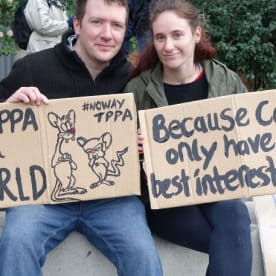 PPA
RLD
#NOWAY
TPPA
Because Co
only have
best interest